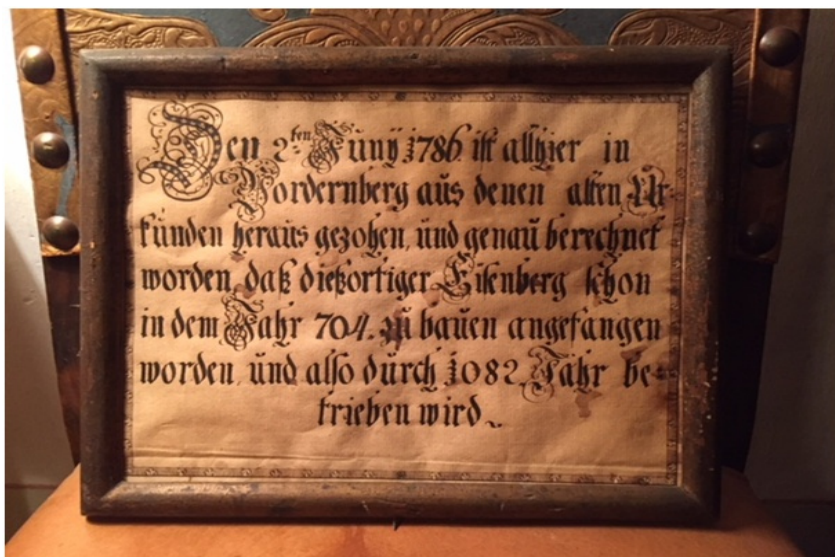 Den 2ten Juny 1786. ist allhier in
Vordernberg aus denen alten Ur-
kunden heraus gezohen, und genau berechnet
worden, daß dießortiger Eisenberg schon
in dem Jahr 704. zu bauen angefangen
worden, und also durch 1082 Jahr be-
trieben wird.